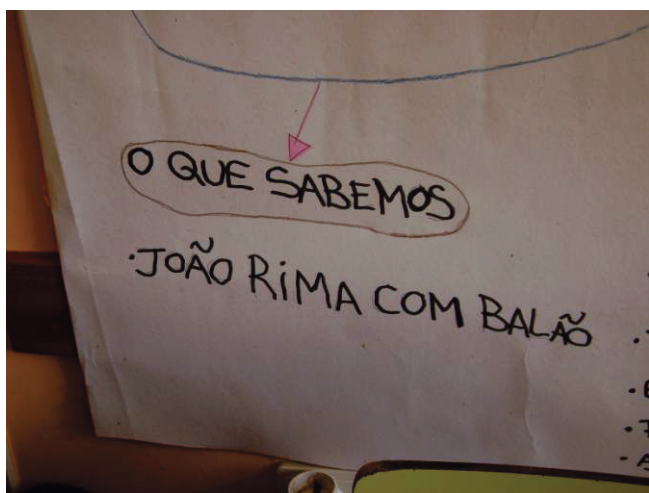 O QUE SABEMOS
·JOÃO RiMA COM BALÃO